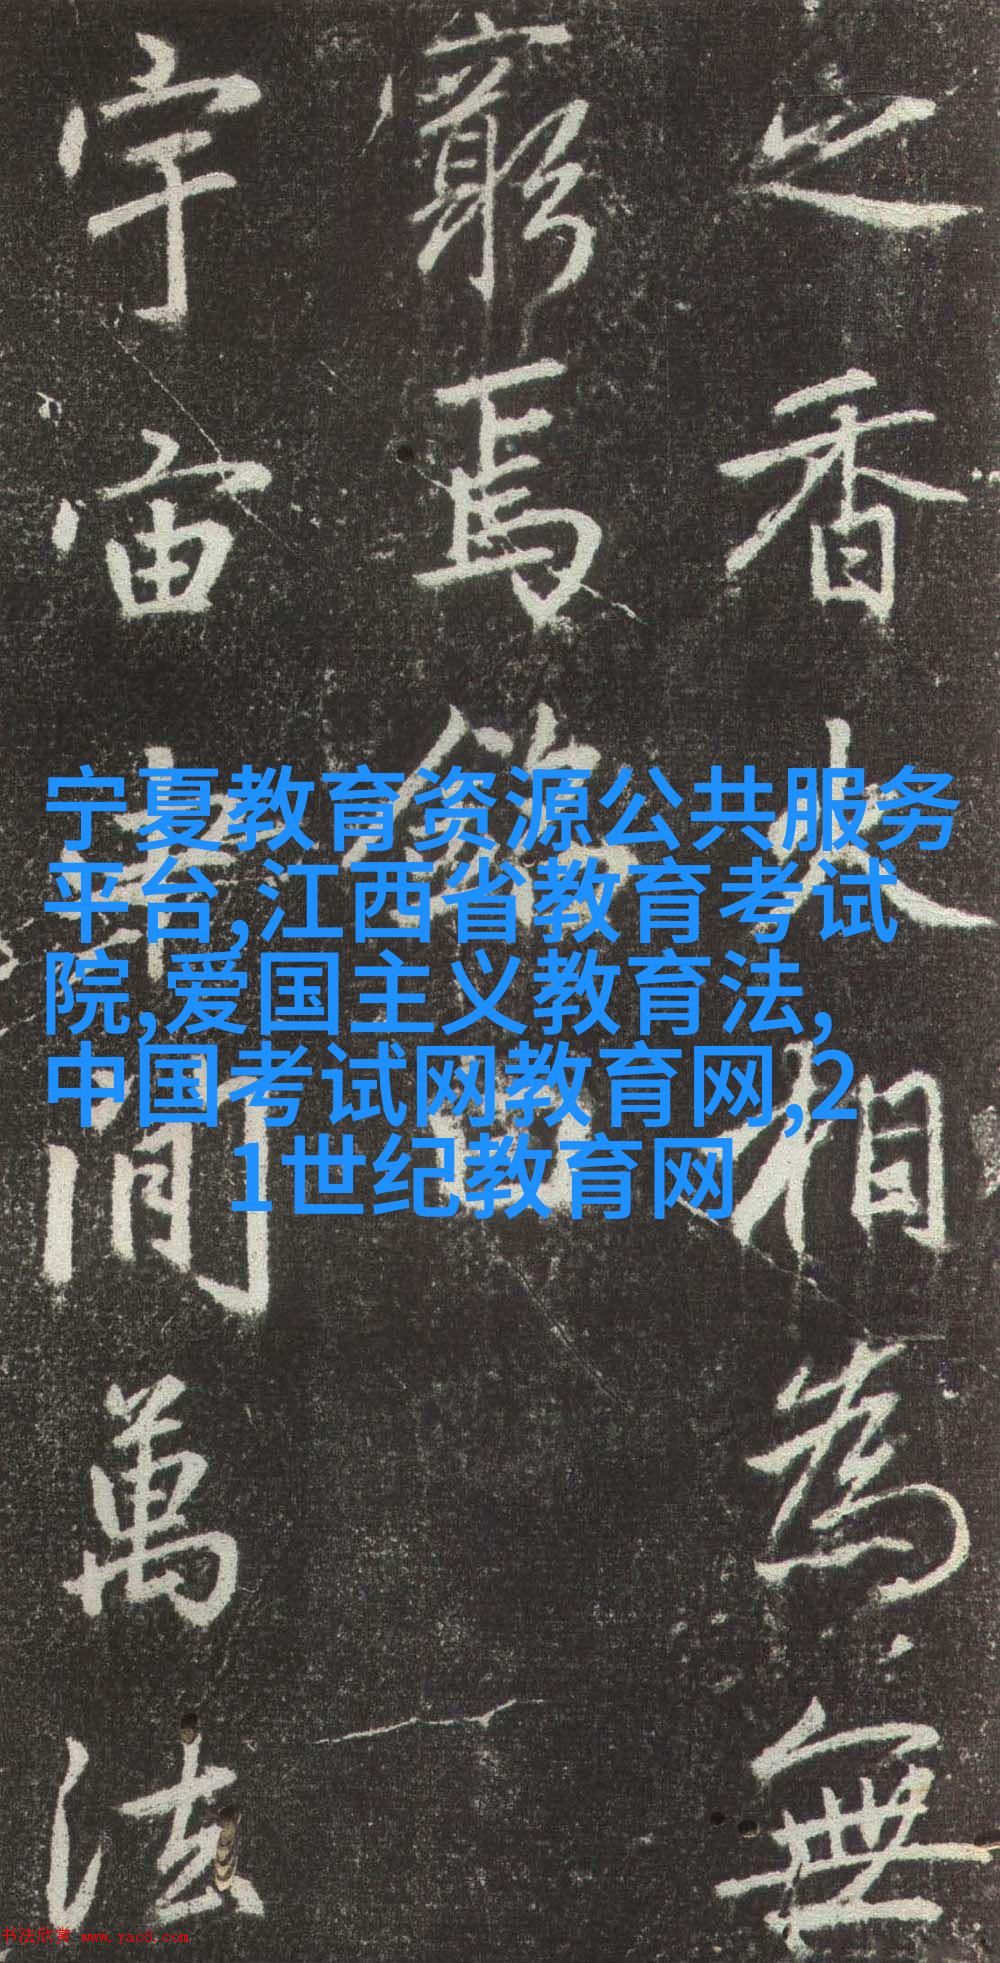 之香相為無
窮焉
宇宙間萬法
宁夏教育资源公共服务
平台,江西省教育考试
院,爱国主义教育法,
中国考试网教育网,2
1世纪教育网
书法欣赏 www.yac8.com